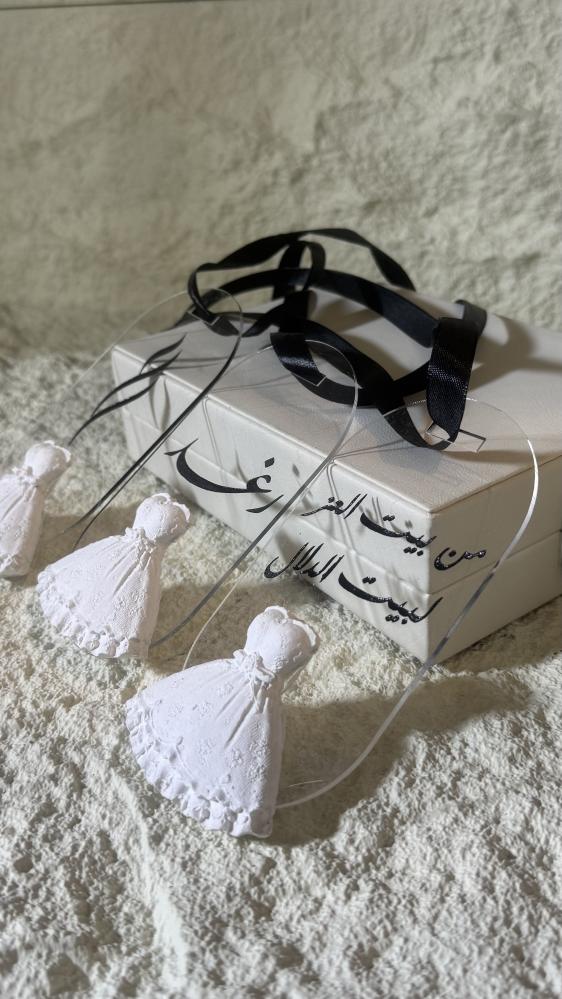 رغد
من بيت العز
لبيت الدلال